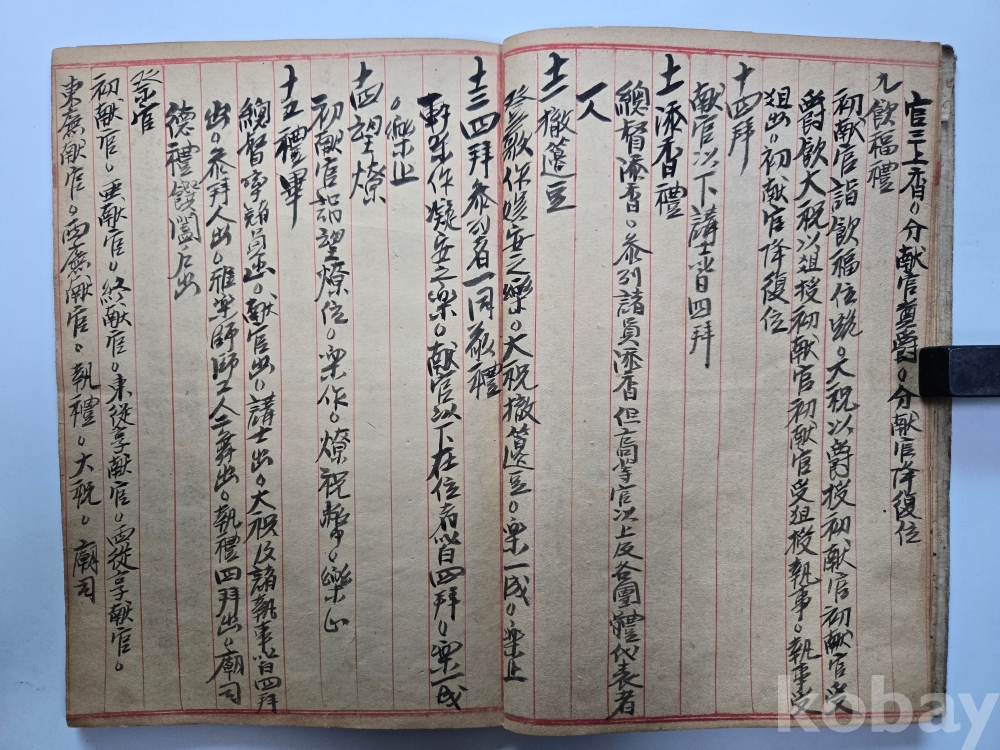 官三上香。分献官奠爵。分献官降復位
九 飮福禮
初献官詣飮福位跪。大祝以爵授初献官初献官受
爵飮大祝以俎授初献官初献官受俎授執事。執事受
俎出。初献官降復位
十 四拜
献官以下講士皆四拜
十一 添香禮
總督添香。參列諸員添香但高等官以上及各團體代表者
一人
十二 撤籩豆
登歌作娛安之樂。大祝撤籩豆。樂一成。樂止
十三 四拜參列者一同敬禮
軒架作凝安之樂。献官以下在位者皆四拜。樂一成
。樂止
十四 望燎
初献官詣望燎位。樂作。燎祝幣。樂止
十五 禮畢
總督率諸員出。献官出。講士出。大祝及諸執事皆四拜
出。參拜人出。雅樂師師工人二舞出。執禮四拜出。廟司
德禮饌闔戶出
祭官
初献官。亞献官。終献官。東從享献官。西從享献官。
東廡献官。西廡献官。執禮。大祝。廟司
kobay